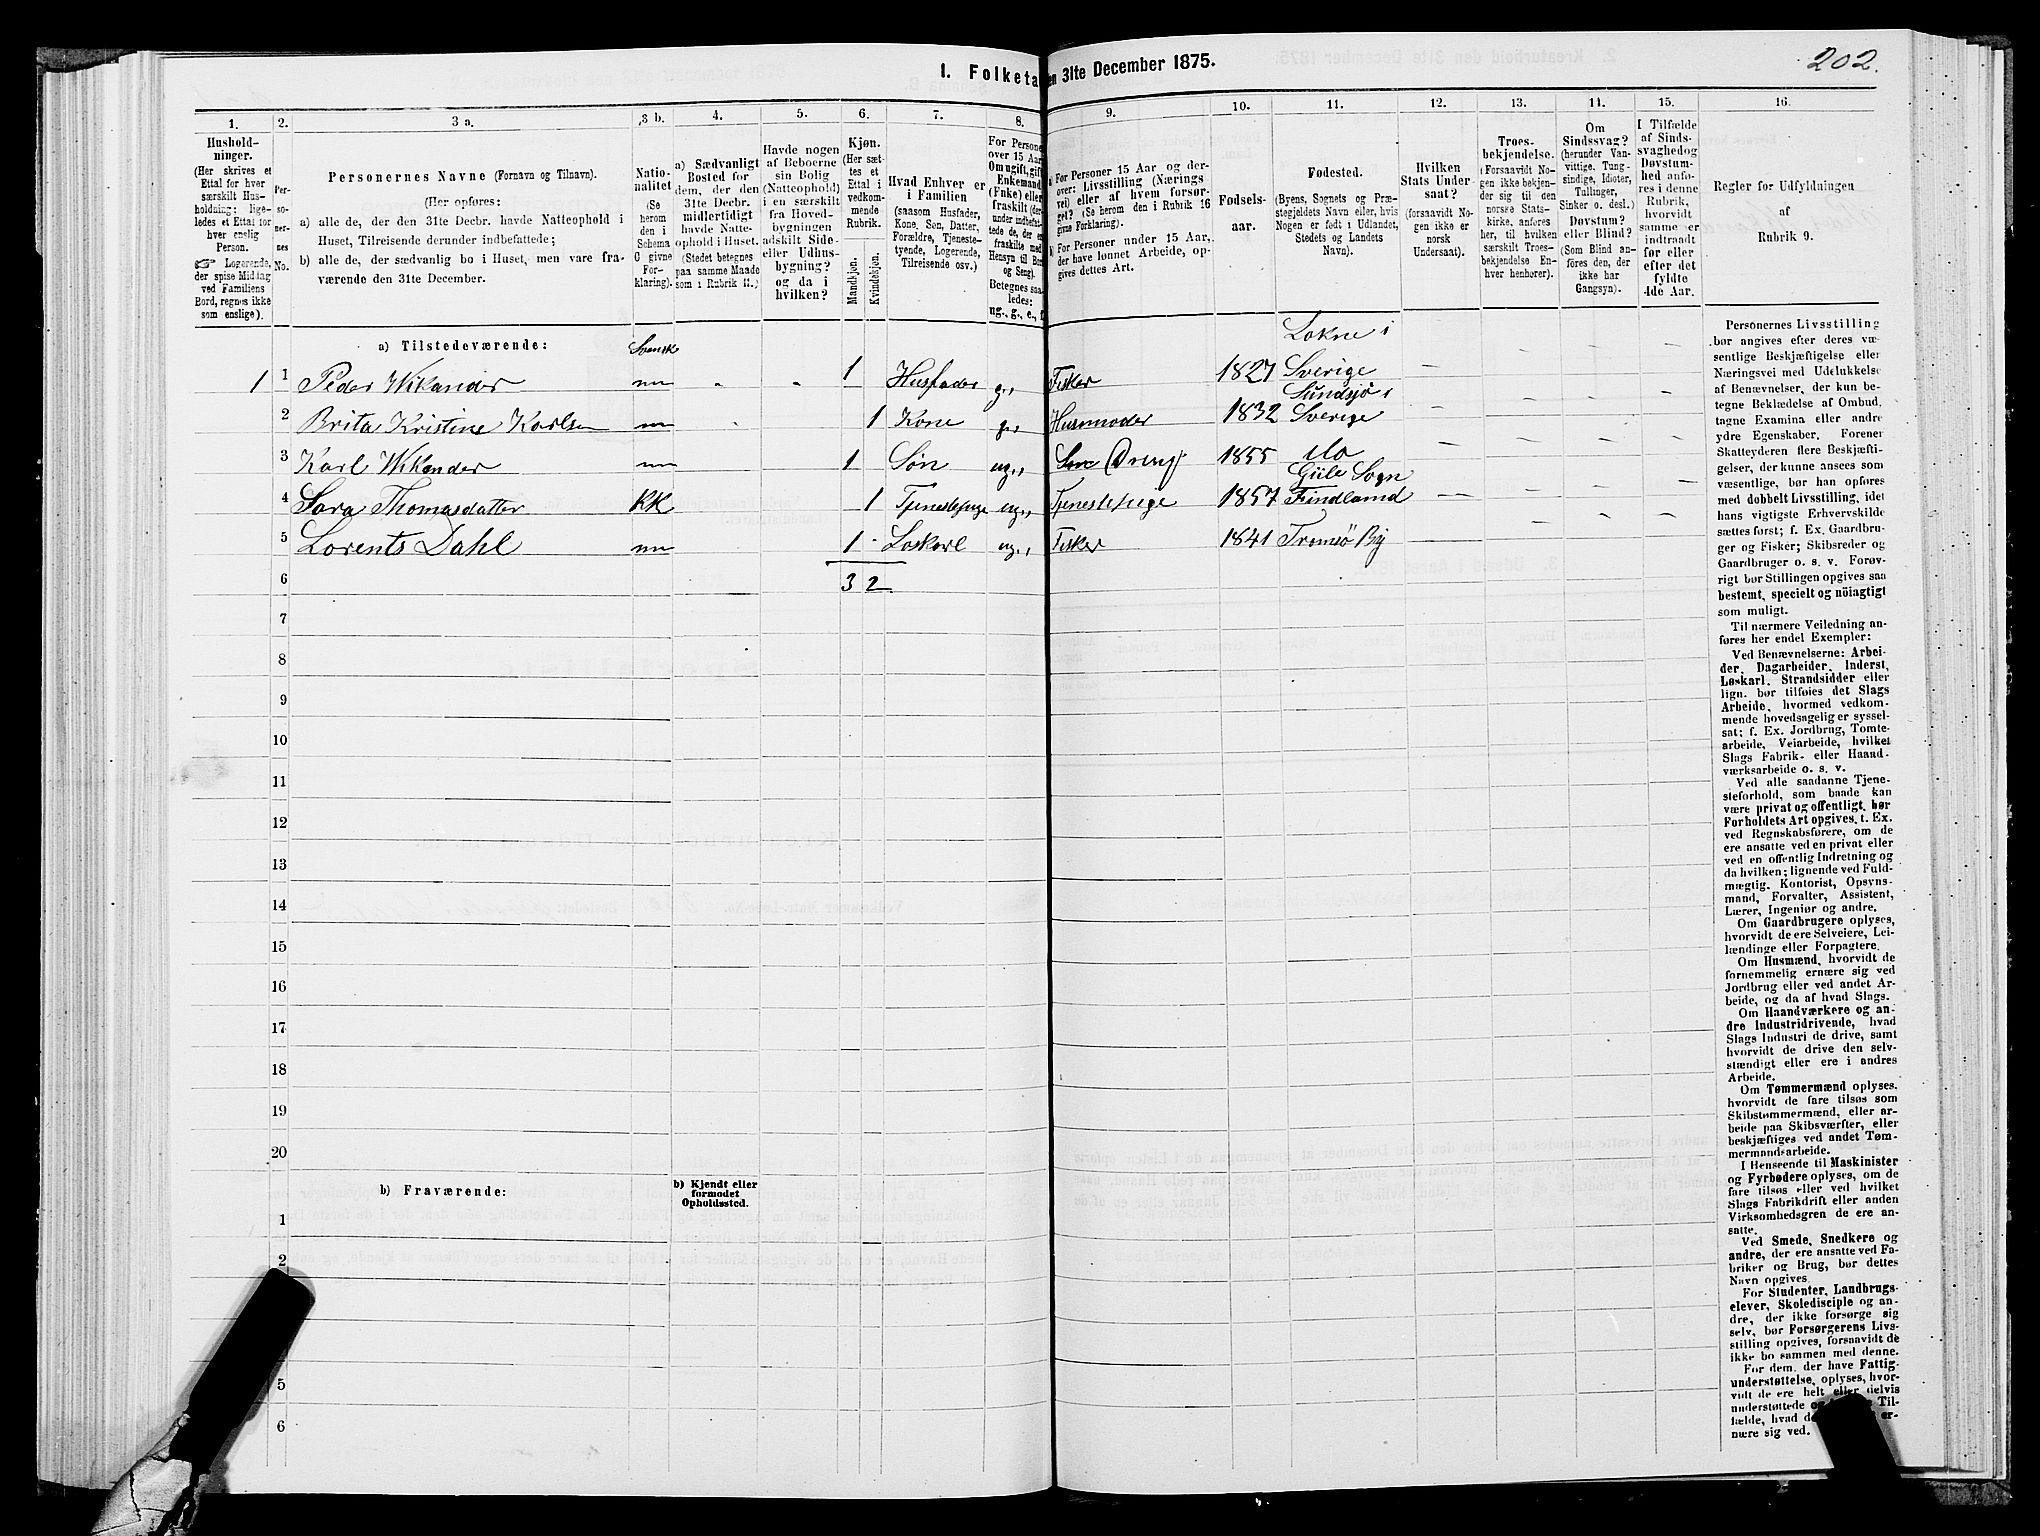 202.
I. Folketa
en 31te December 1875.
1.
2.
3 a.
3 b.
4.
5.
6.
7.
8.
9.
10.
11.
12.
13.
14.
15.
16.
Hushold-
ninger.
(Her skrives et
Ettal for hver
særskilt Hus-
holdning; lige-
ledes et Ettal for
hver enslig
Person.
☞ Logerende,
der spise Middag
ved Familiens
Bord, regnes ikke
som enslige).
Per-
so-
ner-
nes
No.
Personernes Navne (Fornavn og Tilnavn).
(Her opføres:
a) alle de, der den 31te Decbr. havde Natteophold i
Huset, Tilreisende derunder indbefattede;
b) alle de, der sædvanlig bo i Huset, men vare fra-
værende den 31te December.
Natio-
nalitet
(Se
herom
den i
Schema
C givne
For-
klaring).
a) Sædvanligt
Bosted for
dem, der den
31te Decbr.
midlertidigt
havde Natte-
ophold i Huset.
(Stedet betegnes
paa samme Maade
som i Rubrik 11.)
Havde nogen
af Beboerne
sin Bolig
(Natteophold)
i en særskilt
fra Hoved-
bygningen
adskilt Side-
eller Udhus-
bygning?
og da i
hvilken?
Kjøn.
(Her sæt-
tes et
Ettal i
vedkom-
mende
Rubrik.
Mandkjøn.
Kvindekjøn.
Hvad Enhver er
i Familien
(saasom Husfader,
Kone, Søn, Datter,
Forældre, Tjeneste-
tyende, Logerende,
Tilreisende osv.)
For Persone
over 15 Aar
Om ugift, gift
Enkemand
(Enke) eller
fraskilt (der-
under indbefat-
tede de, der ere
fraskilte med
Hensyn til Bord
og Seng).
Betegnes saa-
ledes:
ug., g., e., f.
a) For Personer 15 Aar og der-
over: Livsstilling (Nærings-
vei) eller af hvem forsør-
get? (Se herom den i Rubrik 16
givne Forklaring).
b) For Personer under 15 Aar,
der have lønnet Arbeide, op-
gives dettes Art.
Fødsels-
aar.
Fødested.
(Byens, Sognets og Præ-
stegjeldets Navn eller, hvis
Nogen er født i Udlandet,
Stedets og Landets
Navn).
Hvilken
Stats Under-
saat?
(forsaavidt No-
gen ikke er
norsk
Undersaat).
Troes-
bekjendelse.
(Forsaavidt No-
gen ikke bekjen-
der sig til den
norske Stats-
kirke, anføres
her, til hvilken
særskilt Troes-
bekjendelse En-
hver henhører).
Om
Sindssvag?
(herunder Van-
vittige, Tung-
sindige, Idioter,
Tullinger,
Sinker o. desl.)
Døvstum?
eller Blind?
(Som Blind an-
føres den, der
ikke har
Gangsyn).
I Tilfælde
af Sinds-
svaghed og
Døvstum-
hed anfø-
res i denne
Rubrik,
hvorvidt
samme er
indtraadt
før eller
efter det
fyldte
4de Aar.
Regler for Udfyldningen
af
Rubrik 9.
a) Tilstedeværende:
Svensk
Lokne i
1 1 Peder Wikander nn 1 Husfader g., Fisker 1827 Sverige
Sundsjö i
2 Brita Kristine Karlsen nn 1 Kone g., Husmoder 1832 Sverige
3 Karl Wikander nn 1 Søn ug., 1855 do
Güle Sogn
4 Sara Thomasdatter KK 1 Tjenestepige ug., Tjenestepige 1857 Findland
5 Lorents Dahl nn 1 Løskarl ug., Fisker 1841 Tromsö By
6 3 2
7
8
9
10
11
12
13
14
15
16
17
18
19
20
b) Fraværende:
b) Kjendt eller
formodet
Opholdssted.
1
2
5
6
Personernes Livsstilling
bør angives efter deres væ-
sentlige Beskjæftigelse eller
Næringsvei med Udelukkelse
af Benævnelser, der kun be-
tegne Beklædelse af Ombud,
tagne Examina eller andre
ydre Egenskaber. Forener
Skatteyderen flere Beskjæfti-
gelser, der kunne ansees som
væsentlige, bør han opføres
med dobbelt Livsstilling, idet
hans vigtigste Erhvervskilde
sættes først; f. Ex. Gaardbru-
ger og Fisker; Skibsreder og
Gaardbruger o. s. v. Forøv-
rigt bør Stillingen opgives saa
bestemt, specielt og nöiagtigt
som muligt.
Til nærmere Veiledning an-
føres her endel Exempler:
Ved Benævnelserne: Arbei-
der, Dagarbeider, Inderst,
Løskarl, Strandsidder eller
lign. bør tilføies det Slags
Arbeide, hvormed vedkom-
mende hovedsagelig er syssel-
sat; f. Ex. Jordbrug, Tomte-
arbeide, Veiarbeide, hvilket
Slags Fabrik- eller Haand-
værksarbeide o. s. v.
Ved alle saadanne Tjene-
steforhold, som baade kan
være privat og offentligt, bør
Forholdets Art opgives, t. Ex.
ved Regnskabsførere, om de
ere ansatte ved en privat eller
ved en offentlig Indretning og
da hvilken; lignende ved Fuld-
mægtig, Kontorist, Opsyns-
mand, Forvalter, Assistent,
Lærer, Ingeniør og andre.
Om Gaardbrugere oplyses,
hvorvidt de ere Selveiere, Lei-
lændinge eller Forpagtere.
Om Husmænd, hvorvidt de
fornemmelig ernære sig ved
Jordbrug eller ved andet Ar-
beide, og da af hvad Slags.
Om Haandværkere og an-
dre Industridrivende, hvad
Slags Industri de drive, samt
hvorvidt de drive den selv-
stændigt eller ere i andres
Arbeide.
Om Tømmermænd oplyses,
hvorvidt de fare tilsøs som
Skibstømmermænd, eller ar-
beide paa Skibsværfter, eller
beskjæftiges ved andet Tøm-
mermandsarbeide.
I Henseende til Maskinister
og Fyrbødere oplyses, om de
fare tilsøs eller ved hvilket
Slags Fabrikdrift eller anden
Virksomhedsgren de ere an-
satte.
Ved Smede, Snedkere og
andre, der ere ansatte ved Fa-
briker og Brug, bør dettes
Navn opgives.
For Studenter, Landbrugs-
elever, Skoledisciple og an-
dre, der ikke forsørge sig
selv, bør Forsørgerens Livs-
stilling opgives, forsaavidt de
ikke bo sammen med denne.
For dem, der have Fattig-
understøttelse, oplyses, hvor-
vidt de ere helt eller delvis
understøttede og Til-
fælde, hvad de er-
nære sig ved.